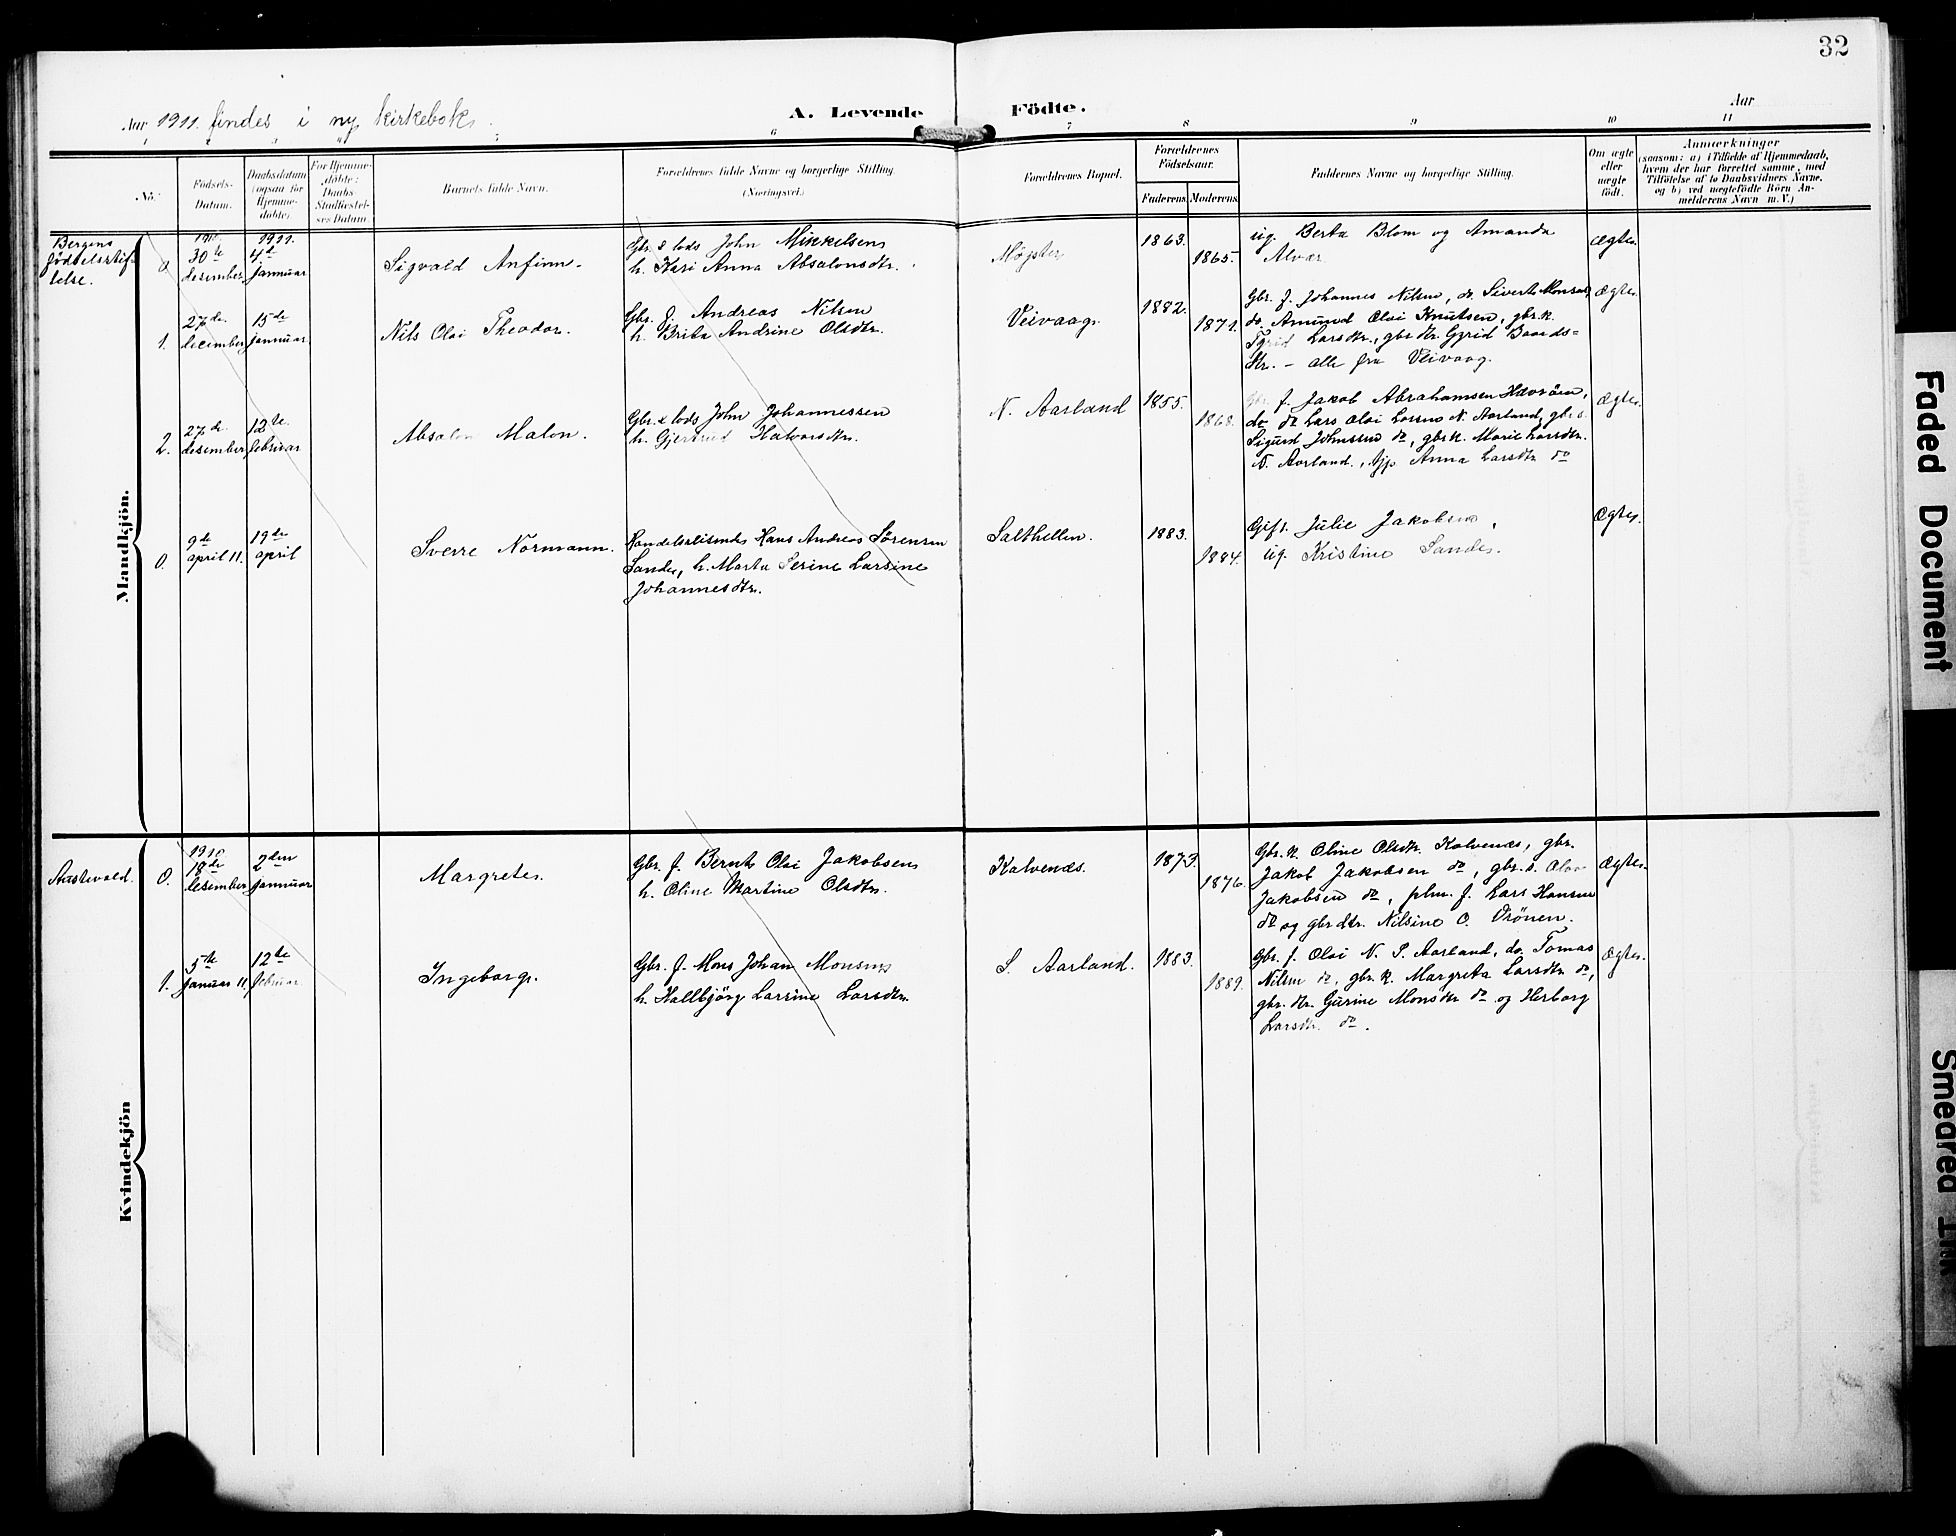 32
Aar 1911. findes i ny kirkebok.
A. Levende Födte.
Aar
1 2 3 4 5 6 7 8 9 10 11
No.
Födsels-
Datum.
Daabsdatum
(ogsaa for
Hjemme-
döbte).
For Hjemme-
döbte:
Daabs-
Stadfæstel-
ses Datum.
Barnets fulde Navn.
Forældrenes fulde Navne og borgerlige Stilling.
(Næringsvei.)
Forældrenes Bopæl.
Forældrenes
Födselsaar.
Faderens. Moderens.
Faddernes Navne og borgerlige Stilling.
Om ægte
eller
uægte
födt.
Anmærkninger
(saasom: a) i Tilfælde af Hjemmedaab,
hvem der har forrettet samme, med
Tilföielse af to Daabsvidners Navne,
og b) ved uægtefödte Börn An-
melderens Navn m. V.)
Mandkjön.
Bergens
fødselsstif-
telse.
0.
1910
30te
desember
1911.
4de
januar
Sigvald Anfinn.
Gbr. & lods John Mikkelsen
h. Kari Anna Absalonsdtr.
Møgster
1863.
1865.
ug. Berta Blom og Amanda
Alver
Ægte.
1.
27de
december
15de
januar
Nils Olai Theodor.
Gbr. f. Andreas Nilsen
h. Brita Andrine Olsdtr.
Veivaag.
1882.
1871.
Gbr. f. Johannes Nilsen, do. Sivert Monsen,
do. Amund Olai Knutsen, gbr.k.
Larsdtr., gbr. dtr. Gyrid Baards-
dtr. – alle fra Veivaag.
Ægte.
2.
27de
desember
12te
februar
Absalon Malon.
Gbr. & lods John Johannessen
h. Gjertrud Halvorsdtr.
N. Aarland
1855.
1868.
f. Jakob Abrahamsen Havröen,
do do Lars Olai Larsen N. Aarland, gbr. s.
Sigurd Johnssen do, gbr.k. Marie Larsdtr.
N. Aarland, Anna Larsdtr do
Ægte.
0.
9de
april 11.
19de
april
Sverre Normann.
Handelsbetjende Hans Andreas Sørensen
Sande, h. Marta Serine Larsine
Johannesdtr.
Salthellen.
1883.
1884.
Gift. Julie Jakobsen,
ug. Kristine Sande.
Ægte.
Kvindekjön
Austevold.
0.
1910
18de
desember
2den
januar
Margrete.
Gbr. f. Bernt Olai Jakobsen
h. Oline Martine Olsdtr.
Kalvenæs.
1873.
1876.
Gbr. k. Oline Olsdtr. Kalvenæs, gbr.
Jakob Jakobsen do, gbr. s. Olav
Jakobsen do, plm. f. Lars Hansen
do og gbr. dtr. Nilsine O. Drönen.
Ægte.
1.
5te
januar 11.
12te
februar
Ingeborg.
Gbr. f. Mons Johan Monsen
h. Hallbjörg Larsine Larsdtr.
S. Aarland.
1883.
1889.
Gbr. f. Olai N. S. Aarland, do. Tomas
Nilsen do, gbr. k. Margreta Larsdtr do,
gbr. dtr. Gurine Monsdtr do og Herborg
Larsdtr. do.
Ægte.
Faded Document
Smeared Ink